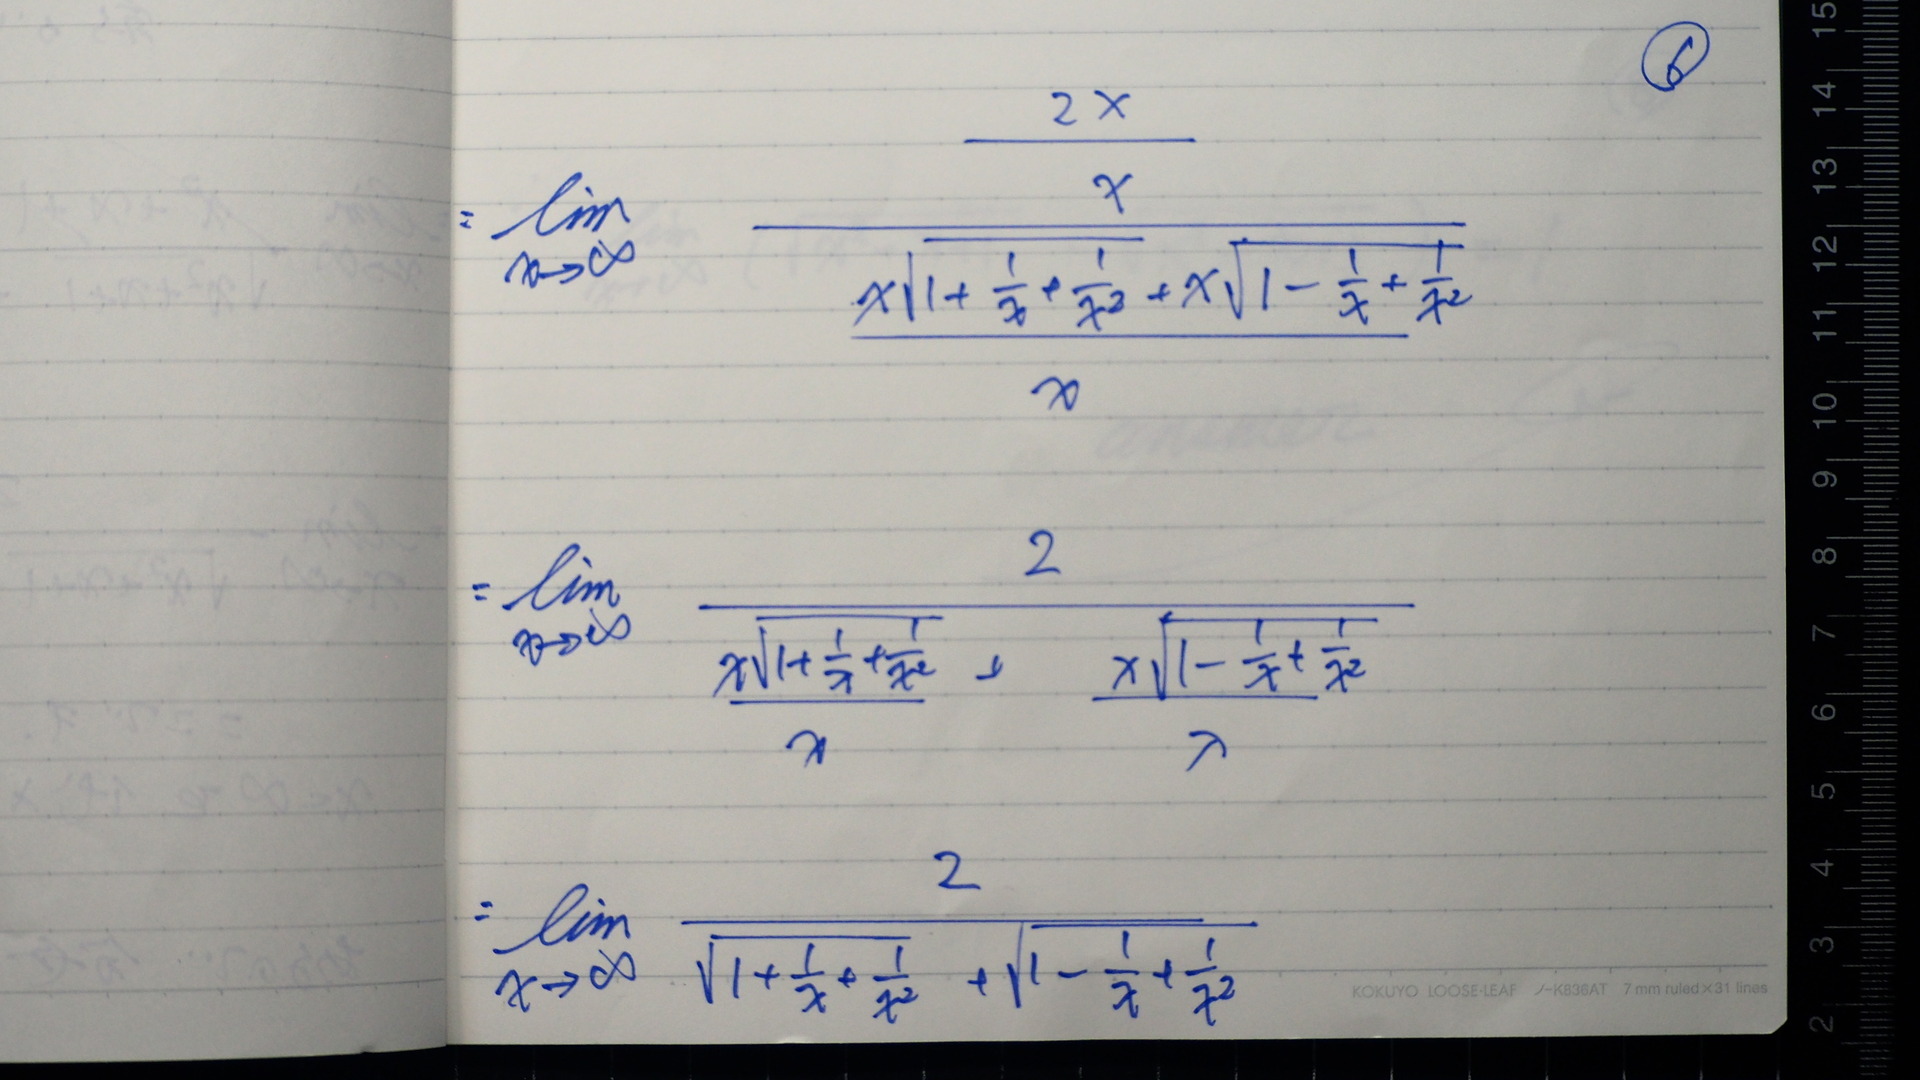 ⑥
= lim x→∞ (2x / x) / ((x√(1 + 1/x + 1/x²) + x√(1 - 1/x + 1/x²)) / x)
= lim x→∞ 2 / (x√(1 + 1/x + 1/x²) / x + x√(1 - 1/x + 1/x²) / x)
= lim x→∞ 2 / (√(1 + 1/x + 1/x²) + √(1 - 1/x + 1/x²))
KOKUYO LOOSE-LEAF ノ-K836AT 7 mm ruled×31 lines
15
14
13
12
11
10
9
8
7
6
5
4
3
2